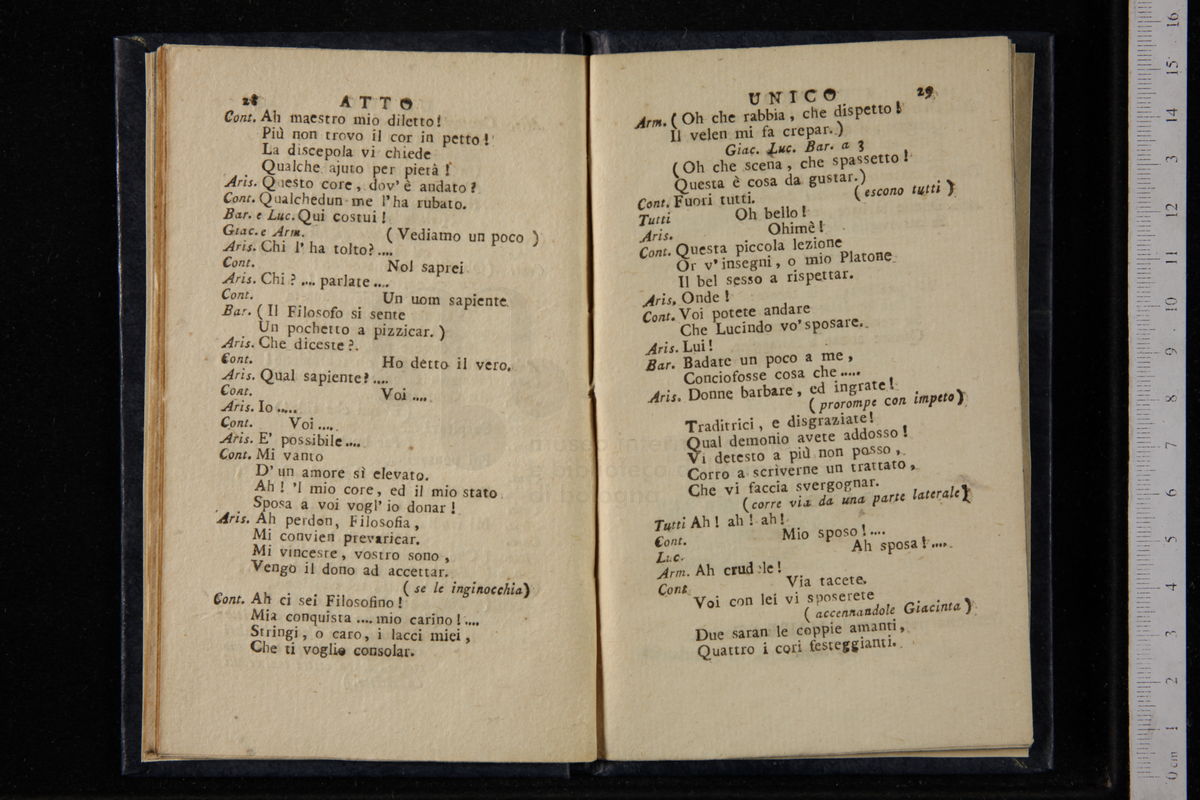 28 ATTO
Cont. Ah maestro mio diletto!
Più non trovo il cor in petto!
La discepola vi chiede
Qualche ajuto per pietà!
Aris. Questo core, dov' è andato?
Cont. Qualchedun me l'ha rubato.
Bar. e Luc. Qui costui!
Giac. e Arm. (Vediamo un poco)
Aris. Chi l' ha tolto?....
Cont. Nol saprei
Aris. Chi? .... parlate ....
Cont. Un uom sapiente.
Bar. (Il Filosofo si sente
Un pochetto a pizzicar.)
Aris. Che diceste?.
Cont. Ho detto il vero.
Aris. Qual sapiente?....
Cont. Voi ....
Aris. Io .....
Cont. Voi ....
Aris. E' possibile ....
Cont. Mi vanto
D' un amore sì elevato.
Ah! 'l mio core, ed il mio stato
Sposa a voi vogl' io donar!
Aris. Ah perdon, Filosofia,
Mi convien prevaricar.
Mi vinceste, vostro sono,
Vengo il dono ad accettar.
(se le inginocchia)
Cont. Ah ci sei Filosofino!
Mia conquista .... mio carino! ....
Stringi, o caro, i lacci miei,
Che ti voglio consolar.
UNICO 29
Arm. (Oh che rabbia, che dispetto!
Il velen mi fa crepar.)
Giac. Luc. Bar. a 3
(Oh che scena, che spassetto!
Questa è cosa da gustar.)
Cont. Fuori tutti. (escono tutti)
Tutti Oh bello!
Aris. Ohimè!
Cont. Questa piccola lezione
Or v' insegni, o mio Platone
Il bel sesso a rispettar.
Aris. Onde!
Cont. Voi potete andare
Che Lucindo vo' sposare.
Aris. Lui!
Bar. Badate un poco a me,
Conciofosse cosa che .....
Aris. Donne barbare, ed ingrate!
(prorompe con impeto)
Traditrici, e disgraziate!
Qual demonio avete addosso!
Vi detesto a più non posso,
Corro a scriverne un trattato,
Che vi faccia svergognar.
(corre via da una parte laterale)
Tutti Ah! ah! ah!
Cont. Mio sposo! ....
Luc. Ah sposa! ....
Arm. Ah crudele!
Cont. Via tacete.
Voi con lei vi sposerete
(accennandole Giacinta)
Due saran le coppie amanti,
Quattro i cori festeggianti.
0 cm 1 2 3 4 5 6 7 8 9 10 11 12 3 14 15 16